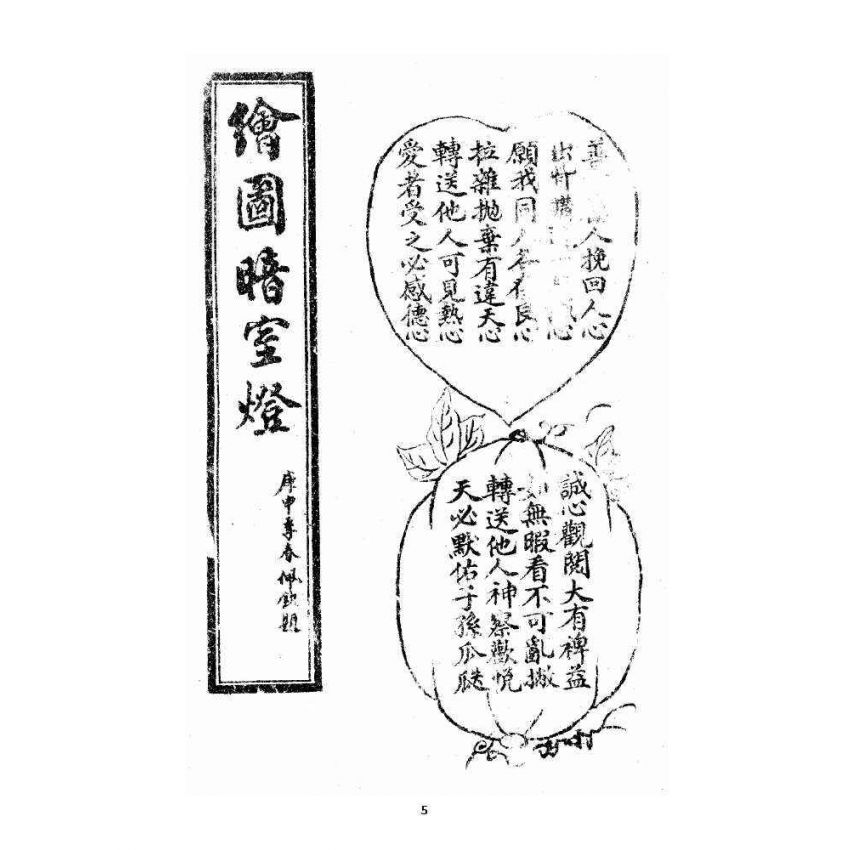 善人挽回人心
出心
願我同人各存良心
拉雜拋棄有違天心
轉送他人可見熱心
愛者受之必感德心
誠心觀閱大有裨益
如無暇看不可亂撇
轉送他人神祭歡悅
天必默佑子孫瓜瓞
繪圖暗室燈
庚申季春佩題
5